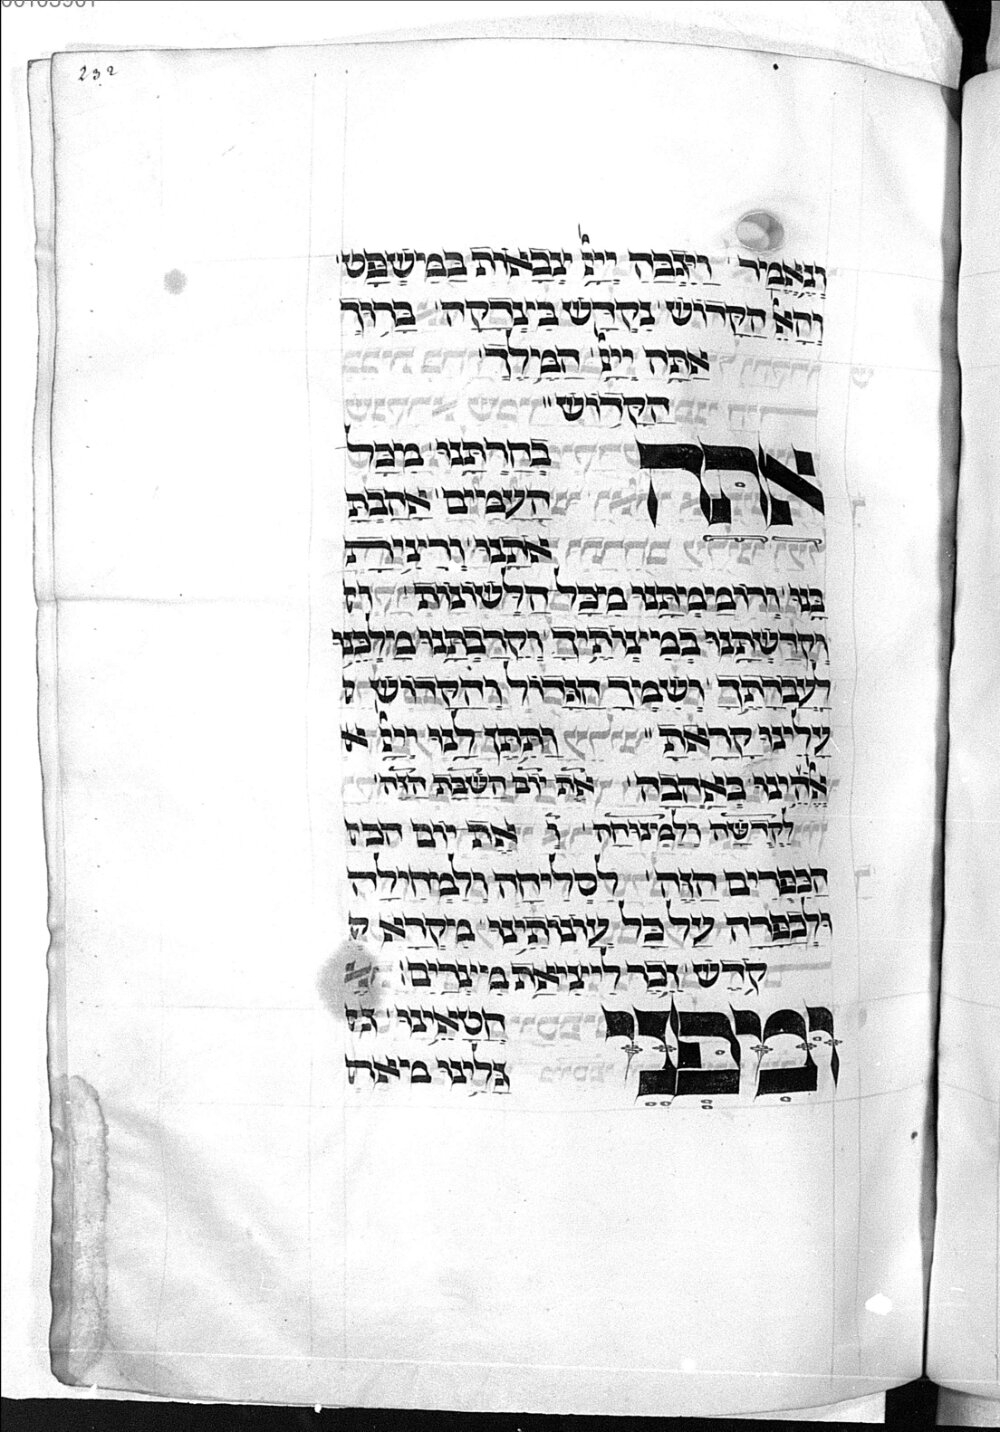 232
וְנֶאֱמַר וַיִּגְבַּהּ יְיָ צְבָאוֹת בַּמִּשְׁפָּט
וְהָאֵ הַקָּדוֹשׁ נִקְדַּשׁ בִּצְדָקָה בָּרוּךְ
אַתָּה יְיָ הַמֶּלֶךְ
הַקָּדוֹשׁ
אתה בְחַרְתָּנוּ מִכָּל
הָעַמִּים אָהַבְתָּ
אֹתָנוּ וְרָצִיתָ
בָּנוּ וְרוֹמַמְתָּנוּ מִכָּל הַלְּשׁוֹנוֹת וק
וְקִדַּשְׁתָּנוּ בְּמִצְוֹתֶיךָ וְקֵרַבְתָּנוּ מַלְכֵּנוּ
לַעֲבֹדָתֶךָ וְשִׁמְךָ הַגָּדוֹל וְהַקָּדוֹשׁ
עָלֵינוּ קָרָאתָ וַתִּתֶּן לָנוּ יְיָ א
אֱלֹהֵינוּ בְּאַהֲבָה אֶת יוֹם הַשַּׁבָּת הַזֶּה
לִקְדֻשָּׁה וְלִמְנוּחָה וְ אֶת יוֹם הכ
הַכִּפֻּרִים הַזֶּה לִסְלִיחָה וְלִמְחִילָה
וּלְכַפָּרָה עַל כָּל עֲוֹנוֹתֵינוּ מִקְרָא ק
קֹדֶשׁ זֵכֶר לִיצִיאַת מִצְרָיִם
וּמִפְּנֵי חֲטָאֵינוּ גל
גָּלִינוּ מֵאַר